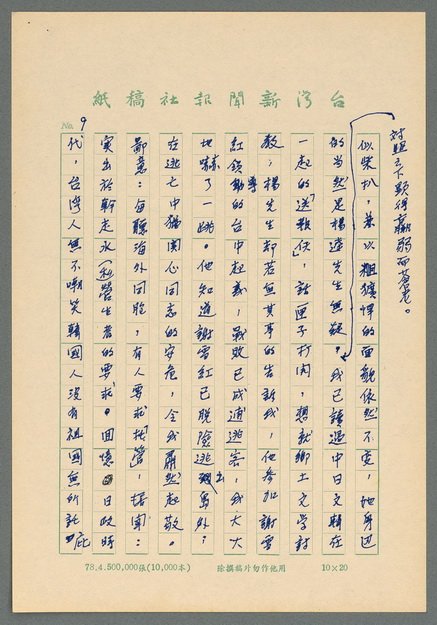 台灣新聞報社稿紙
No. 9
對照之下顯得羸弱而蒼老。
似柴扒，兼以粗獷悍的面貌依然不變，她身邊
的當然是楊逵先生無疑。我已讀過中日文轉在
一起的「送報伕」，話匣子打開，想就鄉土文學討
教，楊先生卻若無其事的告訴我，他參加謝雪
紅領導的台中起義，戰敗已成逋逃客，我大大
地嚇了一跳。他知道謝雪紅已脫險逃出島外，
在逃亡中猶關心同志的安危，令我肅然起敬。
鄙意：每聽海外同胞，有人要求托營，據聞：
實出於幹走水（私營生者）的要求。回憶日政時
代，台灣人無不嘲笑韓國人沒有祖國無所託庇
78.4.500,000張(10,000本)
除撰稿片勿作他用
10×20